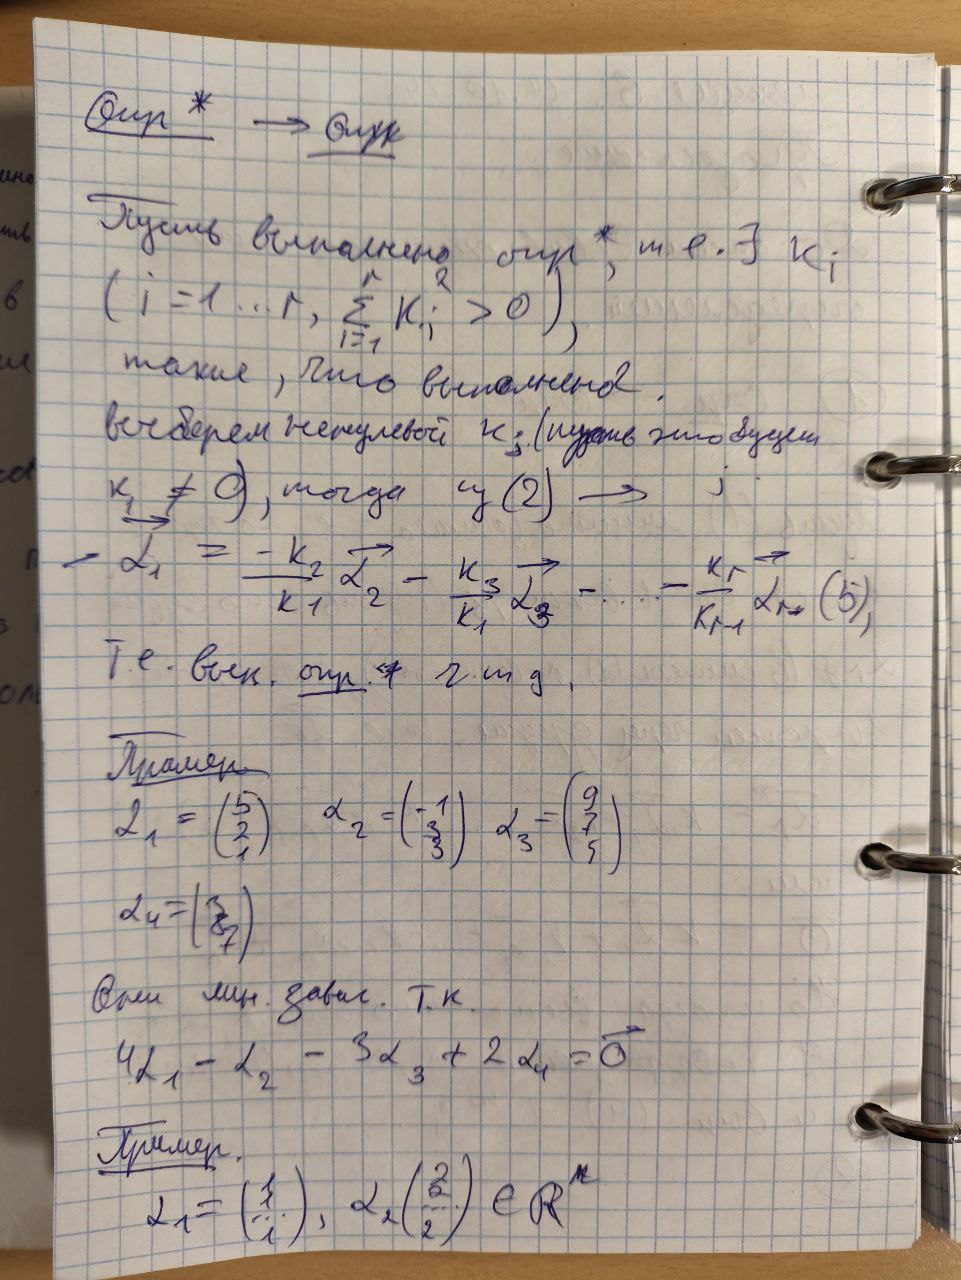 Опр * → Опр
Пусть выполнено опр *, т.е. ∃ Ki
(i = 1 ... r, Σ i=1 r Ki² > 0),
такие, что выполнено 2.
выберем ненулевой Kj (пусть это будет
K1 ≠ 0), тогда из (2) →
α1 = -K2/K1 α2 - K3/K1 α3 - .... - Kr/Kr-1 αr (5),
Т.е. вып. опр. ч.т.д.
Пример
α1 = (5 2 1) α2 = (-1 3 3) α3 = (9 7 5)
α4 = (3 8 7)
Они лин. завис. т.к.
4α1 - α2 - 3α3 + 2α4 = 0
Пример.
α1 = (1 1 ... 1), α2 (2 2 ... 2) ∈ R